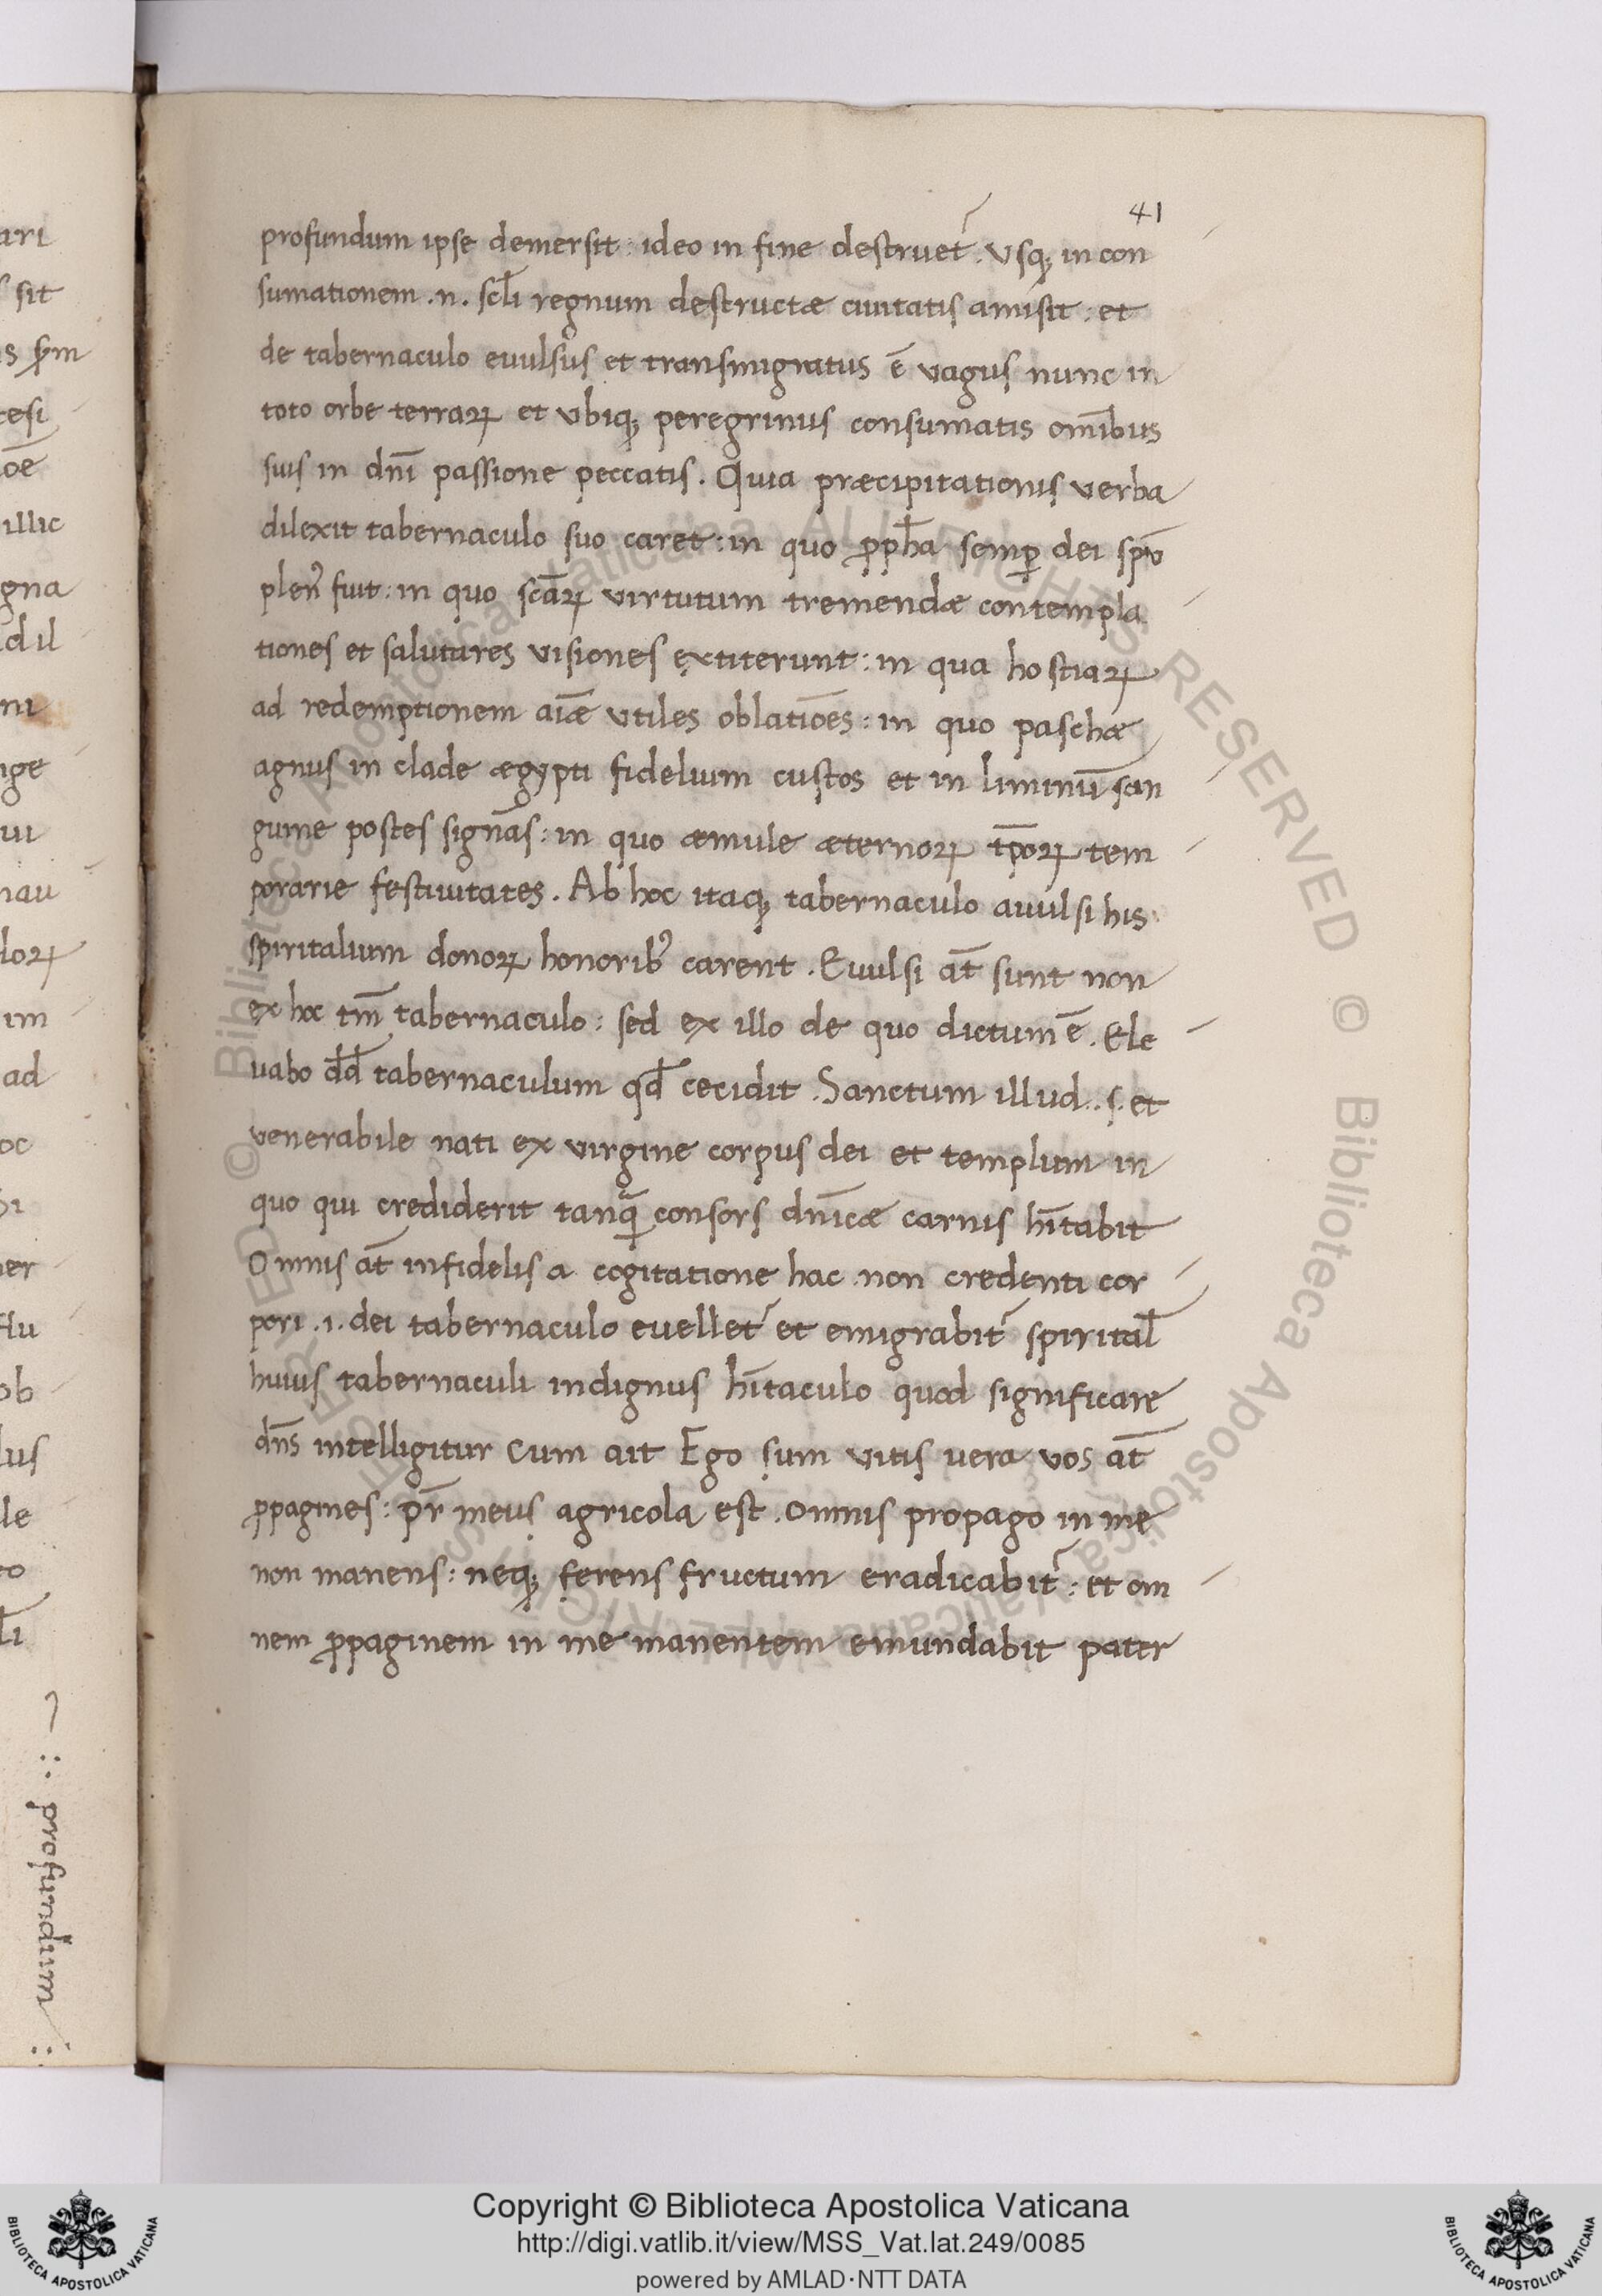 41
profundum ipse demersit : ideo in fine destruet᷑ . Vsq; in con
sumationem .n. scl̄i regnum destructæ ciuitatis amisit : et
de tabernaculo euulsus et transmigratus ē vagus nunc in
toto orbe terraꝝ et vbiq; peregrinus consumatis om̄ibus
suis in dn̄i passione peccatis . Quia præcipitationis verba
dilexit tabernaculo suo caret : in quo ꝓph̄a semꝑ dei spū
plenꝰ fuit : in quo scāꝝ virtutum tremendæ contempla
tiones et salutares visiones extiterunt : in qua hostiaꝝ
ad redemptionem aīæ vtiles oblatiōes : in quo paschæ
agnus in clade ægypti fidelium custos et in liminū san
guine postes signās : in quo æmule æternoꝝ tp̄oꝝ tem
porarie festiuitates . Ab hoc itaq; tabernaculo auulsi his
spiritalium donoꝝ honoribꝰ carent . Euulsi at̄ sunt non
ex hoc tm̄ tabernaculo : sed ex illo de quo dictum ē . Ele
uabo dd̄ tabernaculum qd̄ cecidit . Sanctum illud . .s. et
venerabile nati ex virgine corpus dei et templum in
quo qui crediderit tanꝙ consors dn̄icæ carnis hītabit
Omnis at̄ infidelis a cogitatione hac non credenti cor
pori .i. dei tabernaculo euellet᷑ et emigrabit᷑ spirital̄
huius tabernaculi indignus hītaculo quod significare
dn̄s intelligitur Cum ait Ego sum vitis uera vos at̄
ꝓpagines : pr̄ meus agricola est . omnis propago in me
non manens : neq; ferens fructum eradicabit᷑ : et om
nem ꝓpaginem in me manentem emundabit pater
ari
sit
tesi
oē
illic
gna
d il
ni
ige
ui
nau
loꝝ
im
ad
oc
er
flu
ob
lus
le
eo
l̄i
profundum
© Biblioteca Apostolica Vaticana ALL RIGHTS RESERVED © Biblioteca Apostolica Vaticana ALL RIGHTS RESERVED
BIBLIOTECA APOSTOLICA VATICANA
Copyright © Biblioteca Apostolica Vaticana
http://digi.vatlib.it/view/MSS_Vat.lat.249/0085
powered by AMLAD·NTT DATA
BIBLIOTECA APOSTOLICA VATICANA